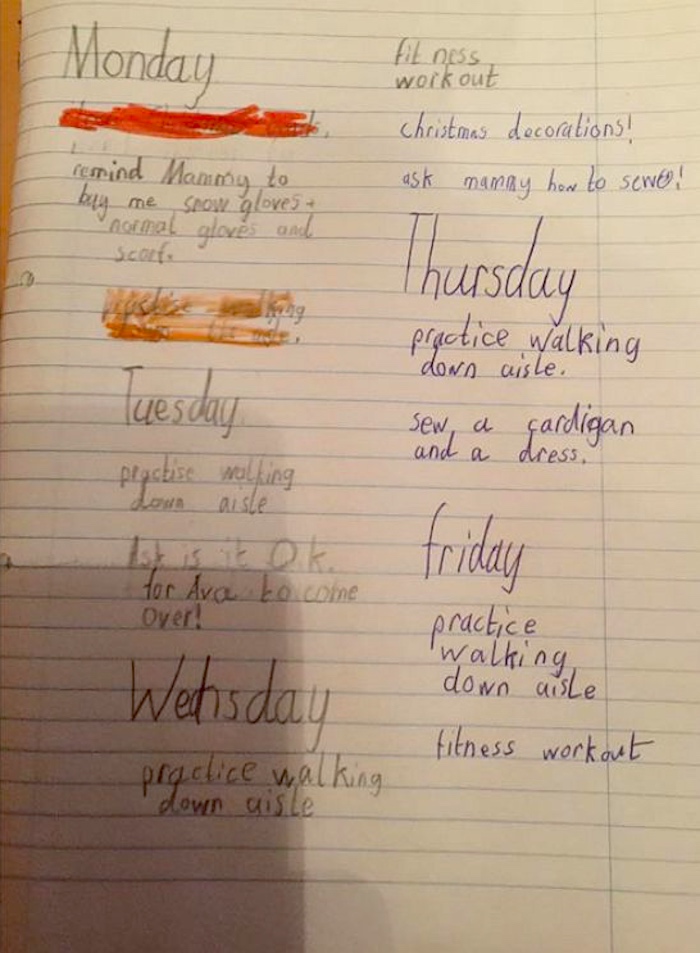 Monday
remind Mammy to
buy me snow gloves +
normal gloves and
scarf.
practise walking
down the aisle.
Tuesday
practise walking
down aisle
Ask is it O.k.
for Ava to come
over!
Wednsday
practice walking
down aisle
fitness
workout
christmas decorations!
ask mammy how to sew!
Thursday
practice walking
down aisle.
sew a cardigan
and a dress.
friday
practice
walking
down aisle
fitness workout